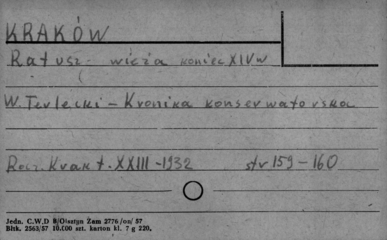 KRAKÓW
Ratusz - wieża koniec XIV w
W. Terlecki - Kronika konserwatorska
Rocz. Krak t. XXIII - 1932 str 159 - 160
Jedn. C.W.D 8/Olsztyn Zam 2776/on/ 57
Bltk. 2563/57 10.000 szt. karton kl. 7 g 220,